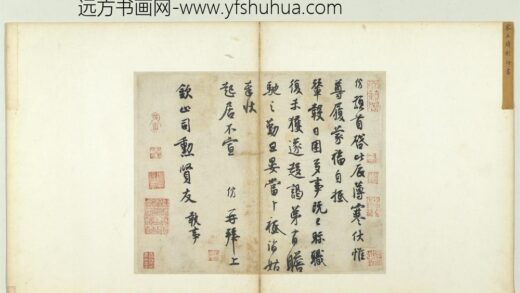 远方书画网- www.yfshuhua.com
頓首啓比辰薄寒伏惟
尊履蒙福自抵
輦轂日困多事既已縣職
復未獲遂趨謁第有瞻
馳之勤旦晏當卜祗謁姑
奉狀
起居不宣 再拜上
欽止司勳賢友 執事